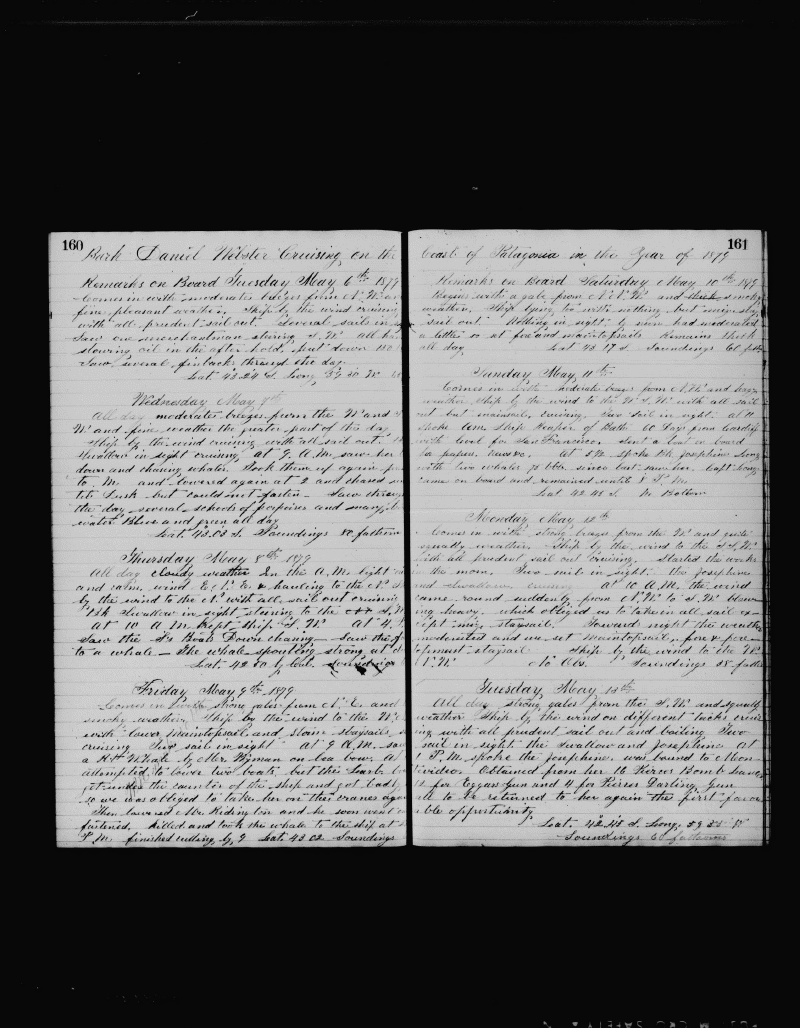 160
Bark Daniel Webster Cruising on the
Remarks on Board Tuesday May 6th 1879
Comes in with moderate breeze from N.W. an
fine pleasant weather. Ship by the wind cruising
with all prudent sail out. Several sails in s
Saw one merchantman steering S.W. All ha
stowing oil in the after hold, put down 150
Saw several finbacks through the day.
Lat. 43.24 S. Long. 59.30 W
Wednesday May 7th
All day moderate breezes from the N. and
W. and fine weather the greater part of the day
Ship by the wind cruising with all sail out.
Swallow in sight cruising at 9 A.M. saw her
down and chasing whales. Took them up again
to M. and lowered again at 2 and chased
till Dusk but could not fasten. Saw throug
the day several schools of porpoises and
water Blue and green all day
Lat. 43.03 S. Soundings 80 fathoms
Thursday May 8th 1879
All day cloudy weather In the A.M. light
and calm, wind E.N.E. & hauling to the N.
by the wind to the N. with all sail out cruising
Bk Swallow in sight steering to the S.W
at 10 A.M. kept ship S.W. At 4.
Saw the S's Boats Down chasing. Saw the
to a whale. The whale spouting strong at d
Lat. 42.50 by obs. Soundings
Friday May 9th 1879
Comes in with strong gales from N.E. and
smoky weather, Ship by the wind to the N.
with lower maintopsail and storm staysails
cruising Two sail in sight. At 9 A.M. sa
a Rt Whale by Mr. Wyman on lea bow.
attempted to lower two boats, but the Larb.
got under the counter of the ship and got badly
so we was obliged to take her on the cranes aga
Then lowered Mr. and he soon went
fastened, killed and took the whale to the ship at
P.M. finished cutting by 9 Lat. 43.02 Soundings
161
Coast of Patagonia in the Year of 1879
Remarks on Board Saturday May 10th 1879
Begins with a gale from N.N.W. and thick smoky
weather. Ship lying to with nothing but
sail out. Nothing in sight by noon had moderated
a little so at five set maintopsail. Remains thick
all day Lat 43.17 S. Soundings 61 fath
Sunday May 11th
Comes in with moderate breeze from N.W. and hazy
weather. Ship by the wind to the W.S.W. with all sail
out but mainsail, cruising. Two sail in sight. At 11
spoke Am. Ship Reaper of Bath 60 Days from Cardiff
with coal for San Francisco. Sent a boat on board
for papers, news &c. At spoke Bk Josephine Long
with two whales 75 bbls. since last saw her. Capt Long
came on board and remained until 8 P.M.
Lat 42.48 S. No Bottom
Monday May 12th
Comes in with strong breeze from the N. and quite
squally weather. Ship by the wind to the S.S.W.
with all prudent sail out cruising. Started the works
in the morn. Two sail in sight. the Josephine
and Swallow cruising At 10 A.M. the wind
came round suddenly from N.W. to S.W. blow-
ing heavy, which obliged us to take in all sail ex
cept miz. staysail. Toward night the weather
moderated and we set maintopsail, fore & fore-
topmast staysail Ship by the wind to the W.
N.W. No Obs. Soundings 58 fath
Tuesday May 13th
All day strong gales from the S.W. and squally
weather Ship by the wind on different tacks cruis
ing with all prudent sail out and boiling Two
sail in sight. the Swallow and Josephine At
1 P.M. spoke the Josephine, was bound to Mon-
tivideo. Obtained from her 16 Pierce Bomb lances
12 for Eggars Gun and 4 for Pierce Darting Gun
all to be returned to her again the first favor
able opportunity.
Lat. 42.48 S. Long. 59.35 W
Soundings 60 fathoms